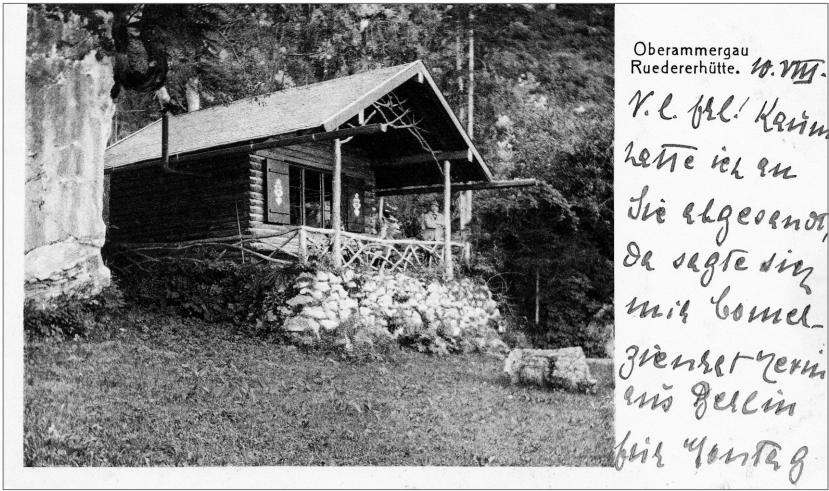 Oberammergau
Ruedererhütte. 10. VIII.
V. l. Frl! Kaum
hatte ich an
Sie abgesandt,
da sagte sich
mir Comer-
zienrat
aus Berlin
für Montag